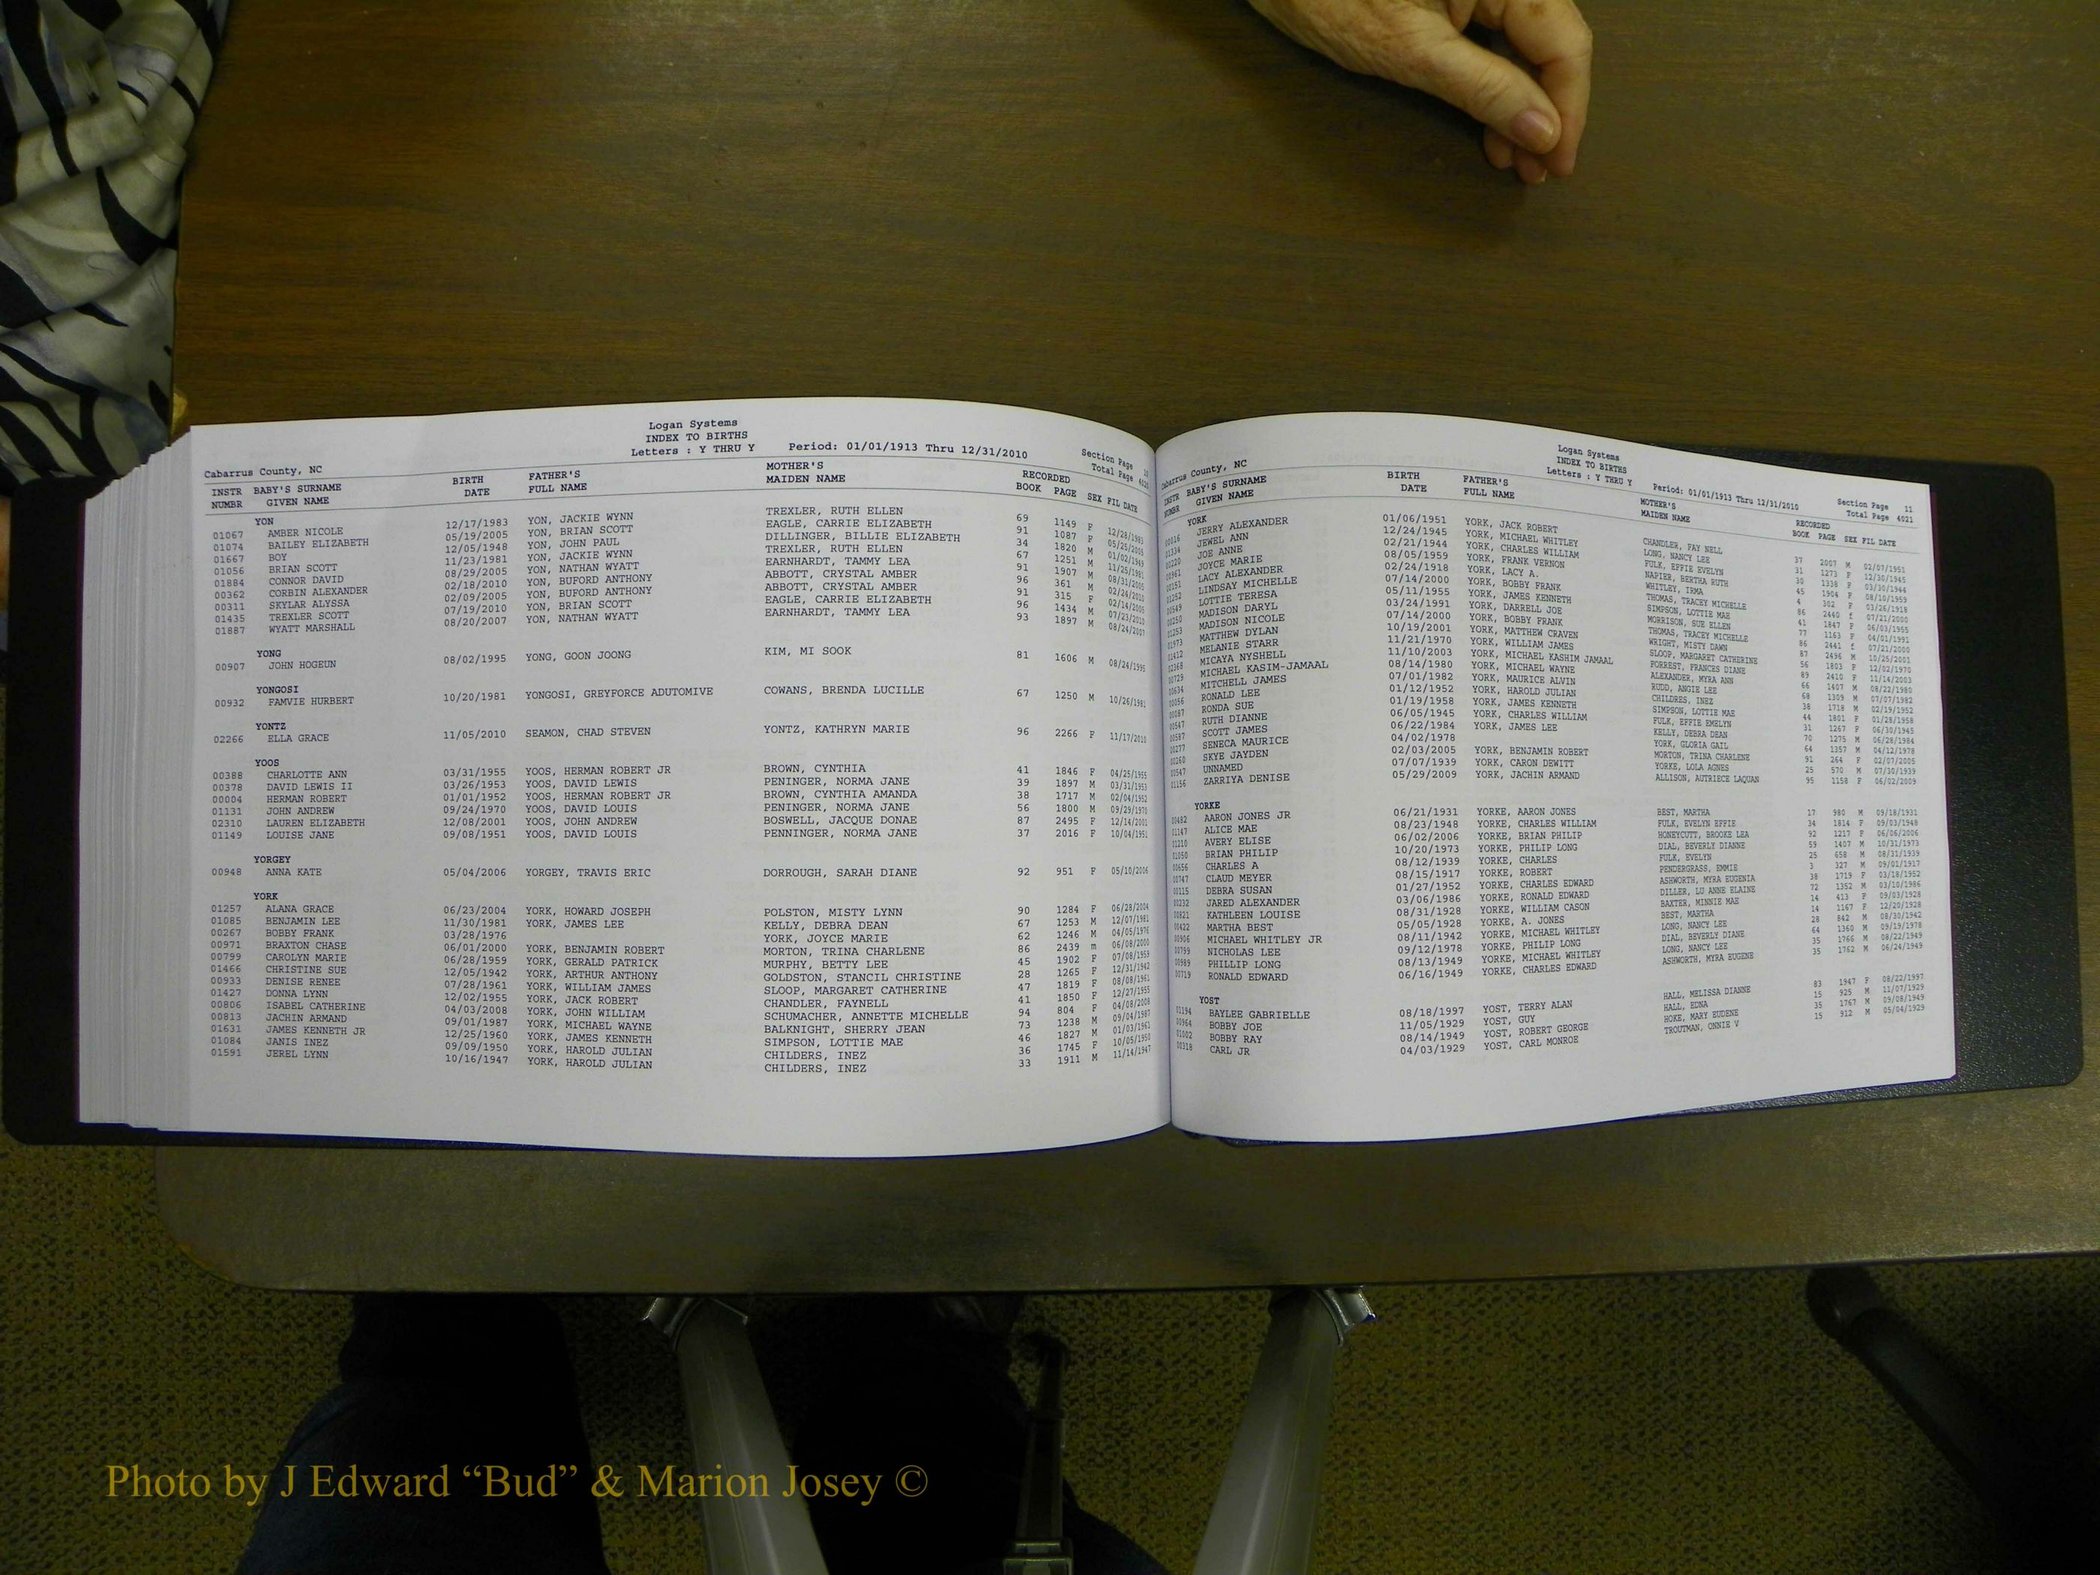 Logan Systems
INDEX TO BIRTHS
Letters : Y THRU Y Period: 01/01/1913 Thru 12/31/2010
Section Page 10
Total Page 4020
Cabarrus County, NC
INSTR BABY'S SURNAME BIRTH FATHER'S MOTHER'S RECORDED
NUMBR GIVEN NAME DATE FULL NAME MAIDEN NAME BOOK PAGE SEX FIL DATE
YON
01067 AMBER NICOLE 12/17/1983 YON, JACKIE WYNN TREXLER, RUTH ELLEN 69 1149 F 12/28/1983
01074 BAILEY ELIZABETH 05/19/2005 YON, BRIAN SCOTT EAGLE, CARRIE ELIZABETH 91 1087 F 05/25/2005
01667 BOY 12/05/1948 YON, JOHN PAUL DILLINGER, BILLIE ELIZABETH 34 1820 M 01/02/1949
01056 BRIAN SCOTT 11/23/1981 YON, JACKIE WYNN TREXLER, RUTH ELLEN 67 1251 M 11/25/1981
01884 CONNOR DAVID 08/29/2005 YON, NATHAN WYATT EARNHARDT, TAMMY LEA 91 1907 M 08/31/2005
00362 CORBIN ALEXANDER 02/18/2010 YON, BUFORD ANTHONY ABBOTT, CRYSTAL AMBER 96 361 M 02/24/2010
00311 SKYLAR ALYSSA 02/09/2005 YON, BUFORD ANTHONY ABBOTT, CRYSTAL AMBER 91 315 F 02/14/2005
01435 TREXLER SCOTT 07/19/2010 YON, BRIAN SCOTT EAGLE, CARRIE ELIZABETH 96 1434 M 07/23/2010
01887 WYATT MARSHALL 08/20/2007 YON, NATHAN WYATT EARNHARDT, TAMMY LEA 93 1897 M 08/24/2007
YONG
00907 JOHN HOGEUN 08/02/1995 YONG, GOON JOONG KIM, MI SOOK 81 1606 M 08/24/1995
YONGOSI
00932 FAMVIE HURBERT 10/20/1981 YONGOSI, GREYFORCE ADUTOMIVE COWANS, BRENDA LUCILLE 67 1250 M 10/26/1981
YONTZ
02266 ELLA GRACE 11/05/2010 SEAMON, CHAD STEVEN YONTZ, KATHRYN MARIE 96 2266 F 11/17/2010
YOOS
00388 CHARLOTTE ANN 03/31/1955 YOOS, HERMAN ROBERT JR BROWN, CYNTHIA 41 1846 F 04/25/1955
00378 DAVID LEWIS II 03/26/1953 YOOS, DAVID LEWIS PENINGER, NORMA JANE 39 1897 M 03/31/1953
00004 HERMAN ROBERT 01/01/1952 YOOS, HERMAN ROBERT JR BROWN, CYNTHIA AMANDA 38 1717 M 02/04/1952
01131 JOHN ANDREW 09/24/1970 YOOS, DAVID LOUIS PENINGER, NORMA JANE 56 1800 M 09/29/1970
02310 LAUREN ELIZABETH 12/08/2001 YOOS, JOHN ANDREW BOSWELL, JACQUE DONAE 87 2495 F 12/14/2001
01149 LOUISE JANE 09/08/1951 YOOS, DAVID LOUIS PENNINGER, NORMA JANE 37 2016 F 10/04/1951
YORGEY
00948 ANNA KATE 05/04/2006 YORGEY, TRAVIS ERIC DORROUGH, SARAH DIANE 92 951 F 05/10/2006
YORK
01257 ALANA GRACE 06/23/2004 YORK, HOWARD JOSEPH POLSTON, MISTY LYNN 90 1284 F 06/28/2004
01085 BENJAMIN LEE 11/30/1981 YORK, JAMES LEE KELLY, DEBRA DEAN 67 1253 M 12/07/1981
00267 BOBBY FRANK 03/28/1976 YORK, JOYCE MARIE 62 1246 M 04/05/1976
00971 BRAXTON CHASE 06/01/2000 YORK, BENJAMIN ROBERT MORTON, TRINA CHARLENE 86 2439 m 06/08/2000
00799 CAROLYN MARIE 06/28/1959 YORK, GERALD PATRICK MURPHY, BETTY LEE 45 1902 F 07/08/1959
01466 CHRISTINE SUE 12/05/1942 YORK, ARTHUR ANTHONY GOLDSTON, STANCIL CHRISTINE 28 1265 F 12/31/1942
00933 DENISE RENEE 07/28/1961 YORK, WILLIAM JAMES SLOOP, MARGARET CATHERINE 47 1819 F 08/08/1961
01427 DONNA LYNN 12/02/1955 YORK, JACK ROBERT CHANDLER, FAYNELL 41 1850 F 12/27/1955
00806 ISABEL CATHERINE 04/03/2008 YORK, JOHN WILLIAM SCHUMACHER, ANNETTE MICHELLE 94 804 F 04/08/2008
00813 JACHIN ARMAND 09/01/1987 YORK, MICHAEL WAYNE BALKNIGHT, SHERRY JEAN 73 1238 M 09/04/1987
01631 JAMES KENNETH JR 12/25/1960 YORK, JAMES KENNETH SIMPSON, LOTTIE MAE 46 1827 M 01/03/1961
01084 JANIS INEZ 09/09/1950 YORK, HAROLD JULIAN CHILDERS, INEZ 36 1745 F 10/05/1950
01591 JEREL LYNN 10/16/1947 YORK, HAROLD JULIAN CHILDERS, INEZ 33 1911 M 11/14/1947
Logan Systems
INDEX TO BIRTHS
Letters : Y THRU Y Period: 01/01/1913 Thru 12/31/2010
Section Page 11
Total Page 4021
Cabarrus County, NC
INSTR BABY'S SURNAME BIRTH FATHER'S MOTHER'S RECORDED
NUMBR GIVEN NAME DATE FULL NAME MAIDEN NAME BOOK PAGE SEX FIL DATE
YORK
00016 JERRY ALEXANDER 01/06/1951 YORK, JACK ROBERT CHANDLER, FAY NELL 37 2007 M 02/07/1951
01334 JEWEL ANN 12/24/1945 YORK, MICHAEL WHITLEY LONG, NANCY LEE 31 1273 F 12/30/1945
00220 JOE ANNE 02/21/1944 YORK, CHARLES WILLIAM FULK, EFFIE EVELYN 30 1338 F 03/30/1944
00961 JOYCE MARIE 08/05/1959 YORK, FRANK VERNON NAPIER, BERTHA RUTH 45 1904 F 08/10/1959
00151 LACY ALEXANDER 02/24/1918 YORK, LACY A. WHITLEY, IRMA 4 302 F 03/26/1918
01252 LINDSAY MICHELLE 07/14/2000 YORK, BOBBY FRANK THOMAS, TRACEY MICHELLE 86 2440 f 07/21/2000
00549 LOTTIE TERESA 05/11/1955 YORK, JAMES KENNETH SIMPSON, LOTTIE MAE 41 1847 F 06/03/1955
00250 MADISON DARYL 03/24/1991 YORK, DARRELL JOE MORRISON, SUE ELLEN 77 1163 F 04/01/1991
01253 MADISON NICOLE 07/14/2000 YORK, BOBBY FRANK THOMAS, TRACEY MICHELLE 86 2441 f 07/21/2000
01973 MATTHEW DYLAN 10/19/2001 YORK, MATTHEW CRAVEN WRIGHT, MISTY DAWN 87 2496 M 10/25/2001
01412 MELANIE STARR 11/21/1970 YORK, WILLIAM JAMES SLOOP, MARGARET CATHERINE 56 1803 F 12/02/1970
02368 MICAYA NYSHELL 11/10/2003 YORK, MICHAEL KASHIM JAMAAL FORREST, FRANCES DIANE 89 2410 F 11/14/2003
00729 MICHAEL KASIM-JAMAAL 08/14/1980 YORK, MICHAEL WAYNE ALEXANDER, MYRA ANN 66 1407 M 08/22/1980
00634 MITCHELL JAMES 07/01/1982 YORK, MAURICE ALVIN RUDD, ANGIE LEE 68 1309 M 07/07/1982
00056 RONALD LEE 01/12/1952 YORK, HAROLD JULIAN CHILDRES, INEZ 38 1718 M 02/19/1952
00087 RONDA SUE 01/19/1958 YORK, JAMES KENNETH SIMPSON, LOTTIE MAE 44 1801 F 01/28/1958
00547 RUTH DIANNE 06/05/1945 YORK, CHARLES WILLIAM FULK, EFFIE EMELYN 31 1267 F 06/30/1945
00587 SCOTT JAMES 06/22/1984 YORK, JAMES LEE KELLY, DEBRA DEAN 70 1275 M 06/28/1984
00277 SENECA MAURICE 04/02/1978 YORK, GLORIA GAIL 64 1357 M 04/12/1978
00260 SKYE JAYDEN 02/03/2005 YORK, BENJAMIN ROBERT MORTON, TRINA CHARLENE 91 264 F 02/07/2005
00547 UNNAMED 07/07/1939 YORK, CARON DEWITT YORKE, LOLA AGNES 25 570 M 07/30/1939
01156 ZARRIYA DENISE 05/29/2009 YORK, JACHIN ARMAND ALLISON, AUTRIECE LAQUAN 95 1158 F 06/02/2009
YORKE
00482 AARON JONES JR 06/21/1931 YORKE, AARON JONES BEST, MARTHA 17 980 M 09/18/1931
01147 ALICE MAE 08/23/1948 YORKE, CHARLES WILLIAM FULK, EVELYN EFFIE 34 1814 F 09/03/1948
01210 AVERY ELISE 06/02/2006 YORKE, BRIAN PHILIP HONEYCUTT, BROOKE LEA 92 1217 F 06/06/2006
01050 BRIAN PHILIP 10/20/1973 YORKE, PHILIP LONG DIAL, BEVERLY DIANNE 59 1407 M 10/31/1973
00656 CHARLES A 08/12/1939 YORKE, CHARLES FULK, EVELYN 25 658 M 08/31/1939
00747 CLAUD MEYER 08/15/1917 YORKE, ROBERT PENDERGRASS, EMMIE 3 327 M 09/01/1917
00115 DEBRA SUSAN 01/27/1952 YORKE, CHARLES EDWARD ASHWORTH, MYRA EUGENIA 38 1719 F 03/18/1952
00232 JARED ALEXANDER 03/06/1986 YORKE, RONALD EDWARD DILLER, LU ANNE ELAINE 72 1352 M 03/10/1986
00821 KATHLEEN LOUISE 08/31/1928 YORKE, WILLIAM CASON BAXTER, MINNIE MAE 14 413 F 09/03/1928
00422 MARTHA BEST 05/05/1928 YORKE, A. JONES BEST, MARTHA 14 1167 F 12/20/1928
00906 MICHAEL WHITLEY JR 08/11/1942 YORKE, MICHAEL WHITLEY LONG, NANCY LEE 28 842 M 08/30/1942
00799 NICHOLAS LEE 09/12/1978 YORKE, PHILIP LONG DIAL, BEVERLY DIANE 64 1360 M 09/19/1978
00989 PHILLIP LONG 08/13/1949 YORKE, MICHAEL WHITLEY LONG, NANCY LEE 35 1766 M 08/22/1949
00719 RONALD EDWARD 06/16/1949 YORKE, CHARLES EDWARD ASHWORTH, MYRA EUGENE 35 1762 M 06/24/1949
YOST
01194 BAYLEE GABRIELLE 08/18/1997 YOST, TERRY ALAN HALL, MELISSA DIANNE 83 1947 F 08/22/1997
00964 BOBBY JOE 11/05/1929 YOST, GUY HALL, EDNA 15 925 M 11/07/1929
01002 BOBBY RAY 08/14/1949 YOST, ROBERT GEORGE HOKE, MARY EUDENE 35 1767 M 09/08/1949
00318 CARL JR 04/03/1929 YOST, CARL MONROE TROUTMAN, ONNIE V 15 912 M 05/04/1929
Photo by J Edward “Bud” & Marion Josey ©